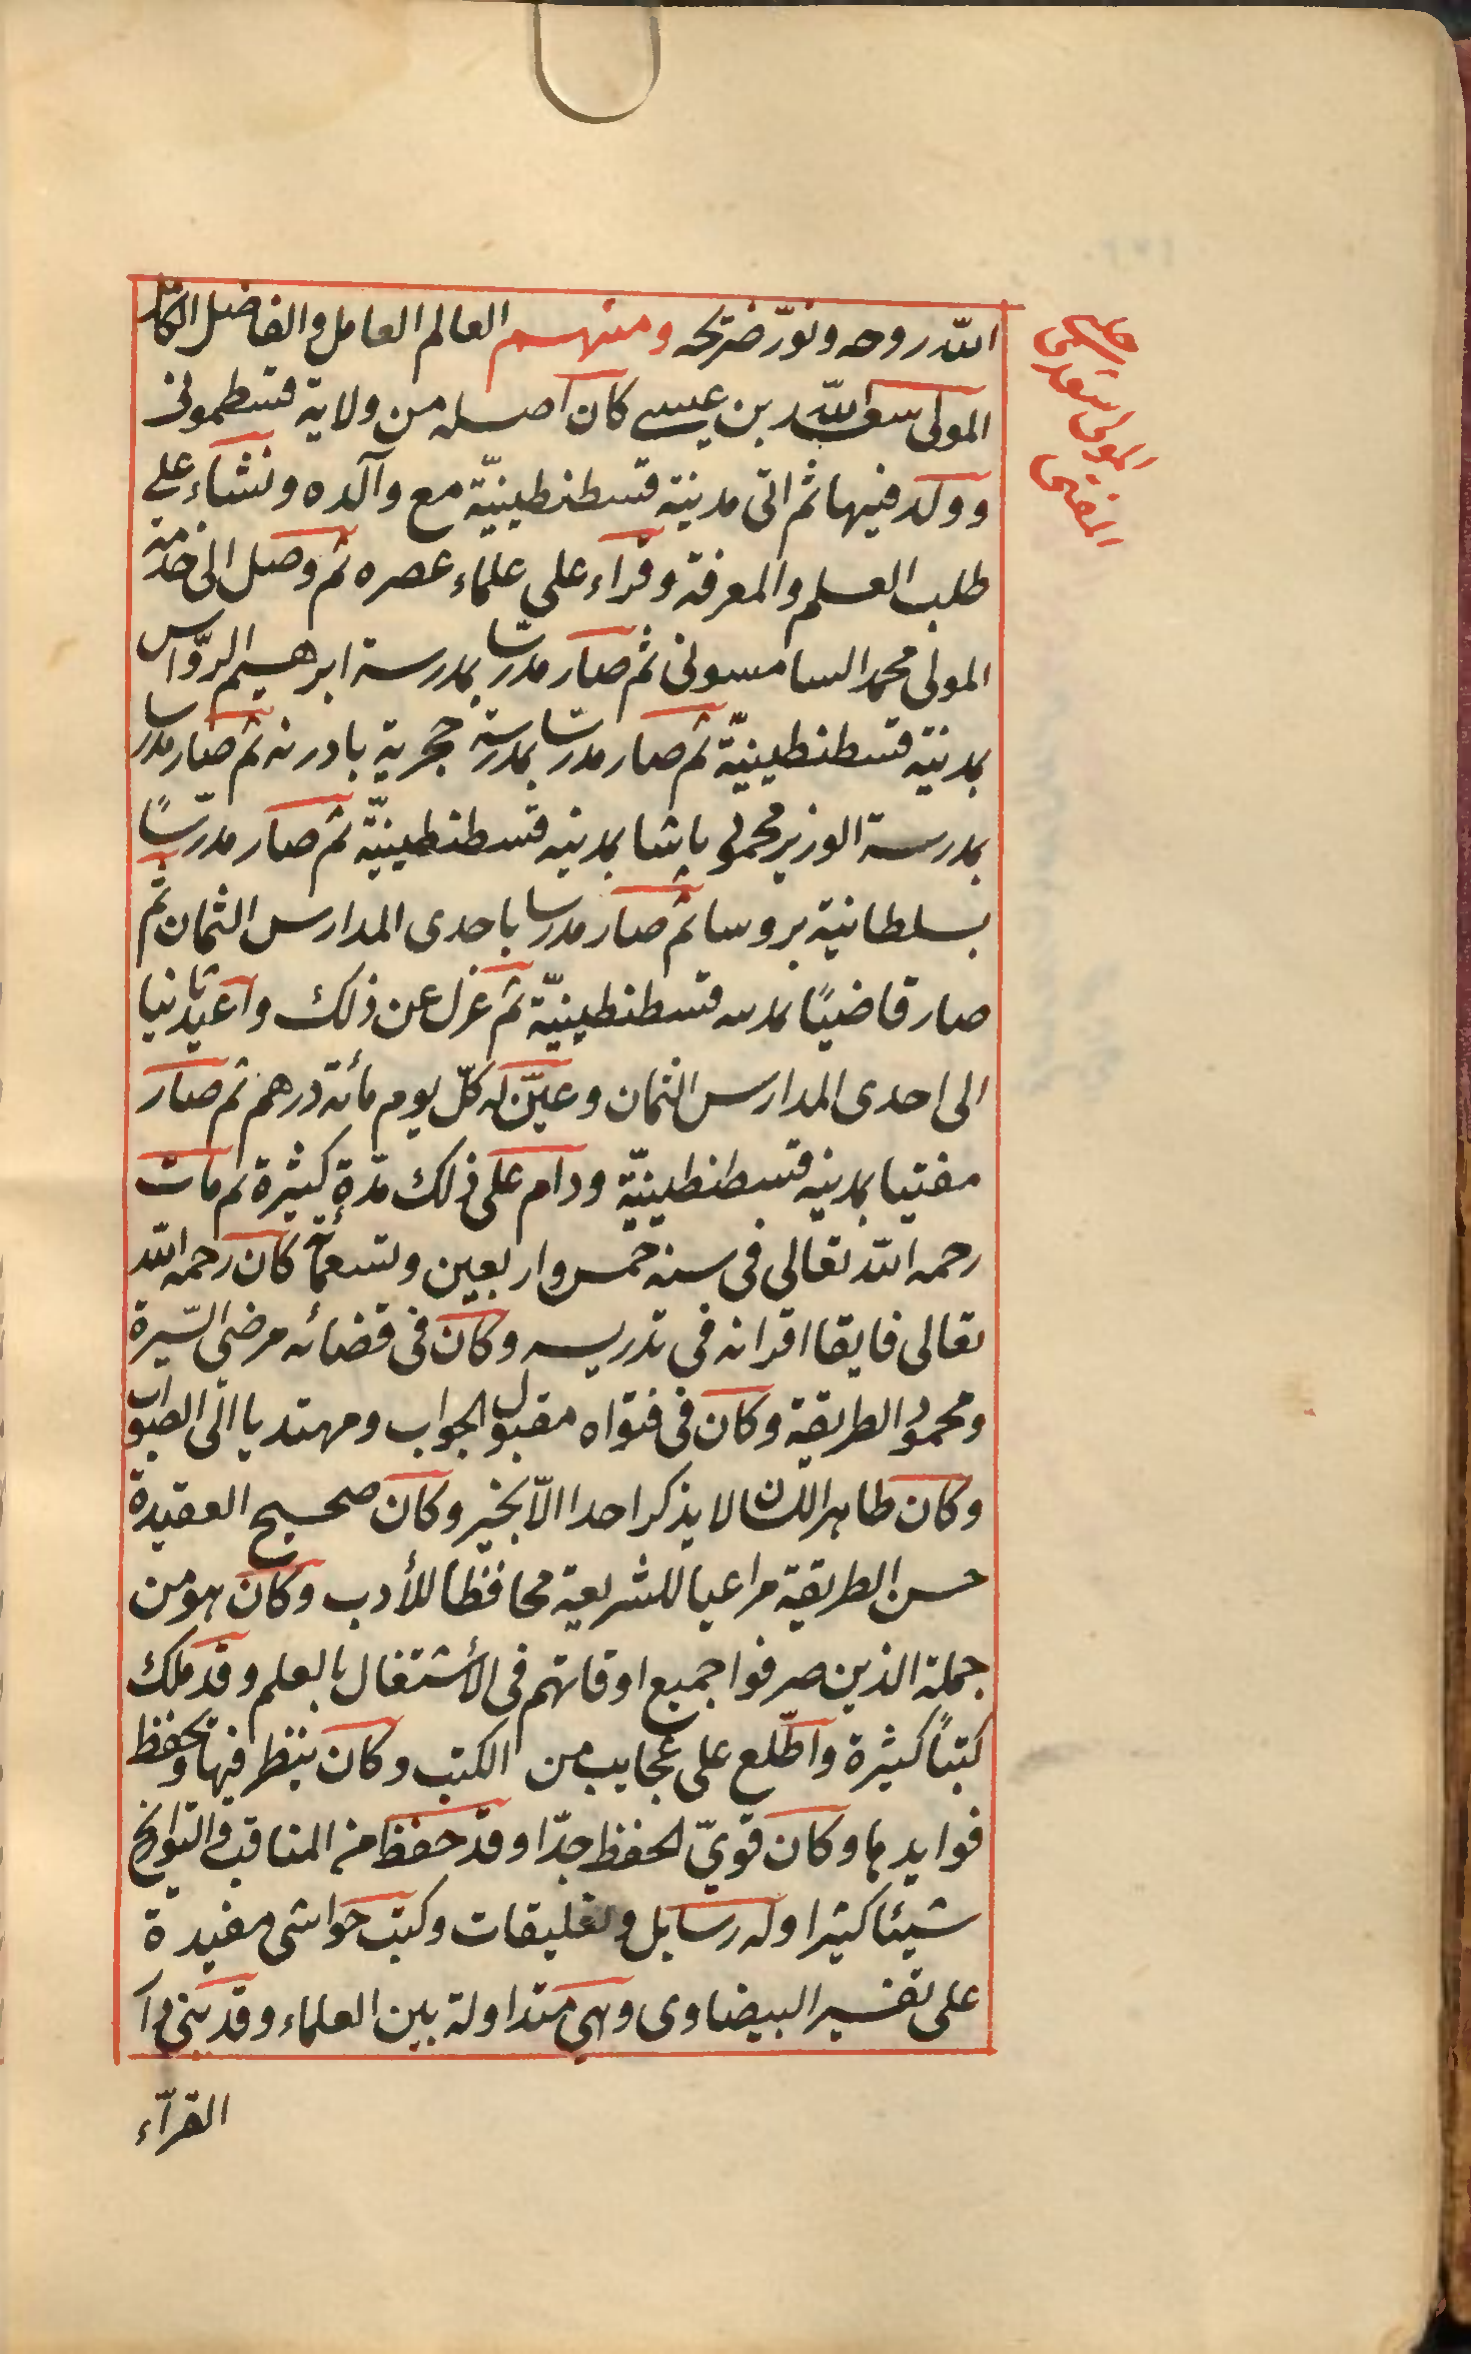 الله روحه ونوّر ضريحه ومنهم العالم العامل والفاضل الكامل
المولى سعد الله بن عيسى كان اصله من ولاية قسطمونى
وولد فيها ثم اتى مدينة قسطنطينيّة مع والده ونشاء على
طلب العلم والمعرفة وقراء على علماء عصره ثم وصل الى خدمة
المولى محمد السامسونى ثم صار مدرسا بمدرسة ابرهيم الروّاس
بمدينة قسطنطينيّة ثم صار مدرسا بمدرسة حجرية بادرنه ثم صار مدرسا
بمدرسة الوزير محمود باشا بمدينه قسطنطينيّة ثم صار مدرّسًا
بسلطانية بروسا ثم صار مدرسا باحدى المدارس الثمان ثم
صار قاضيًا بمدينه قسطنطينيّة ثم عزل عن ذلك واعيد ثانيا
الى احدى المدارس الثمان وعيّن له كلّ يوم مأئة درهم ثم صار
مفتيا بمدينه قسطنطينيّة ودام على ذلك مدّة كثيرة ثم مات
رحمه الله تعالى فى سنه خمس واربعين وتسعمائة كان رحمه الله
تعالى فايقا اقرانه فى تدريسه وكان فى قضائه مرضى السّيرة
ومحمود الطريقة وكان فى فتواه مقبول الجواب ومهتديا الى الصواب
وكان طاهر اللسان لا يذكر احدا الاّ بخير وكان صحيح العقيدة
حسن الطريقة مراعيا للشريعة محافظا للأدب وكان هو من
جملة الذين صرفوا جميع اوقاتهم فى الأشتغال بالعلم وقد ملك
كتباً كثيرة واطّلع على عجايب من الكتب وكان ينظر فيها ويحفظ
فوايدها وكان قويّ الحفظ جدّا وقد حفظ من المناقب والتواريخ
شيئا كثيرا وله رسايل وتعليقات وكتب حواشى مفيدة
على تفسير البيضاوى وهي متداولة بين العلماء وقد بنى دآ
القرآء
المولى سعدى چلبى
المفتى